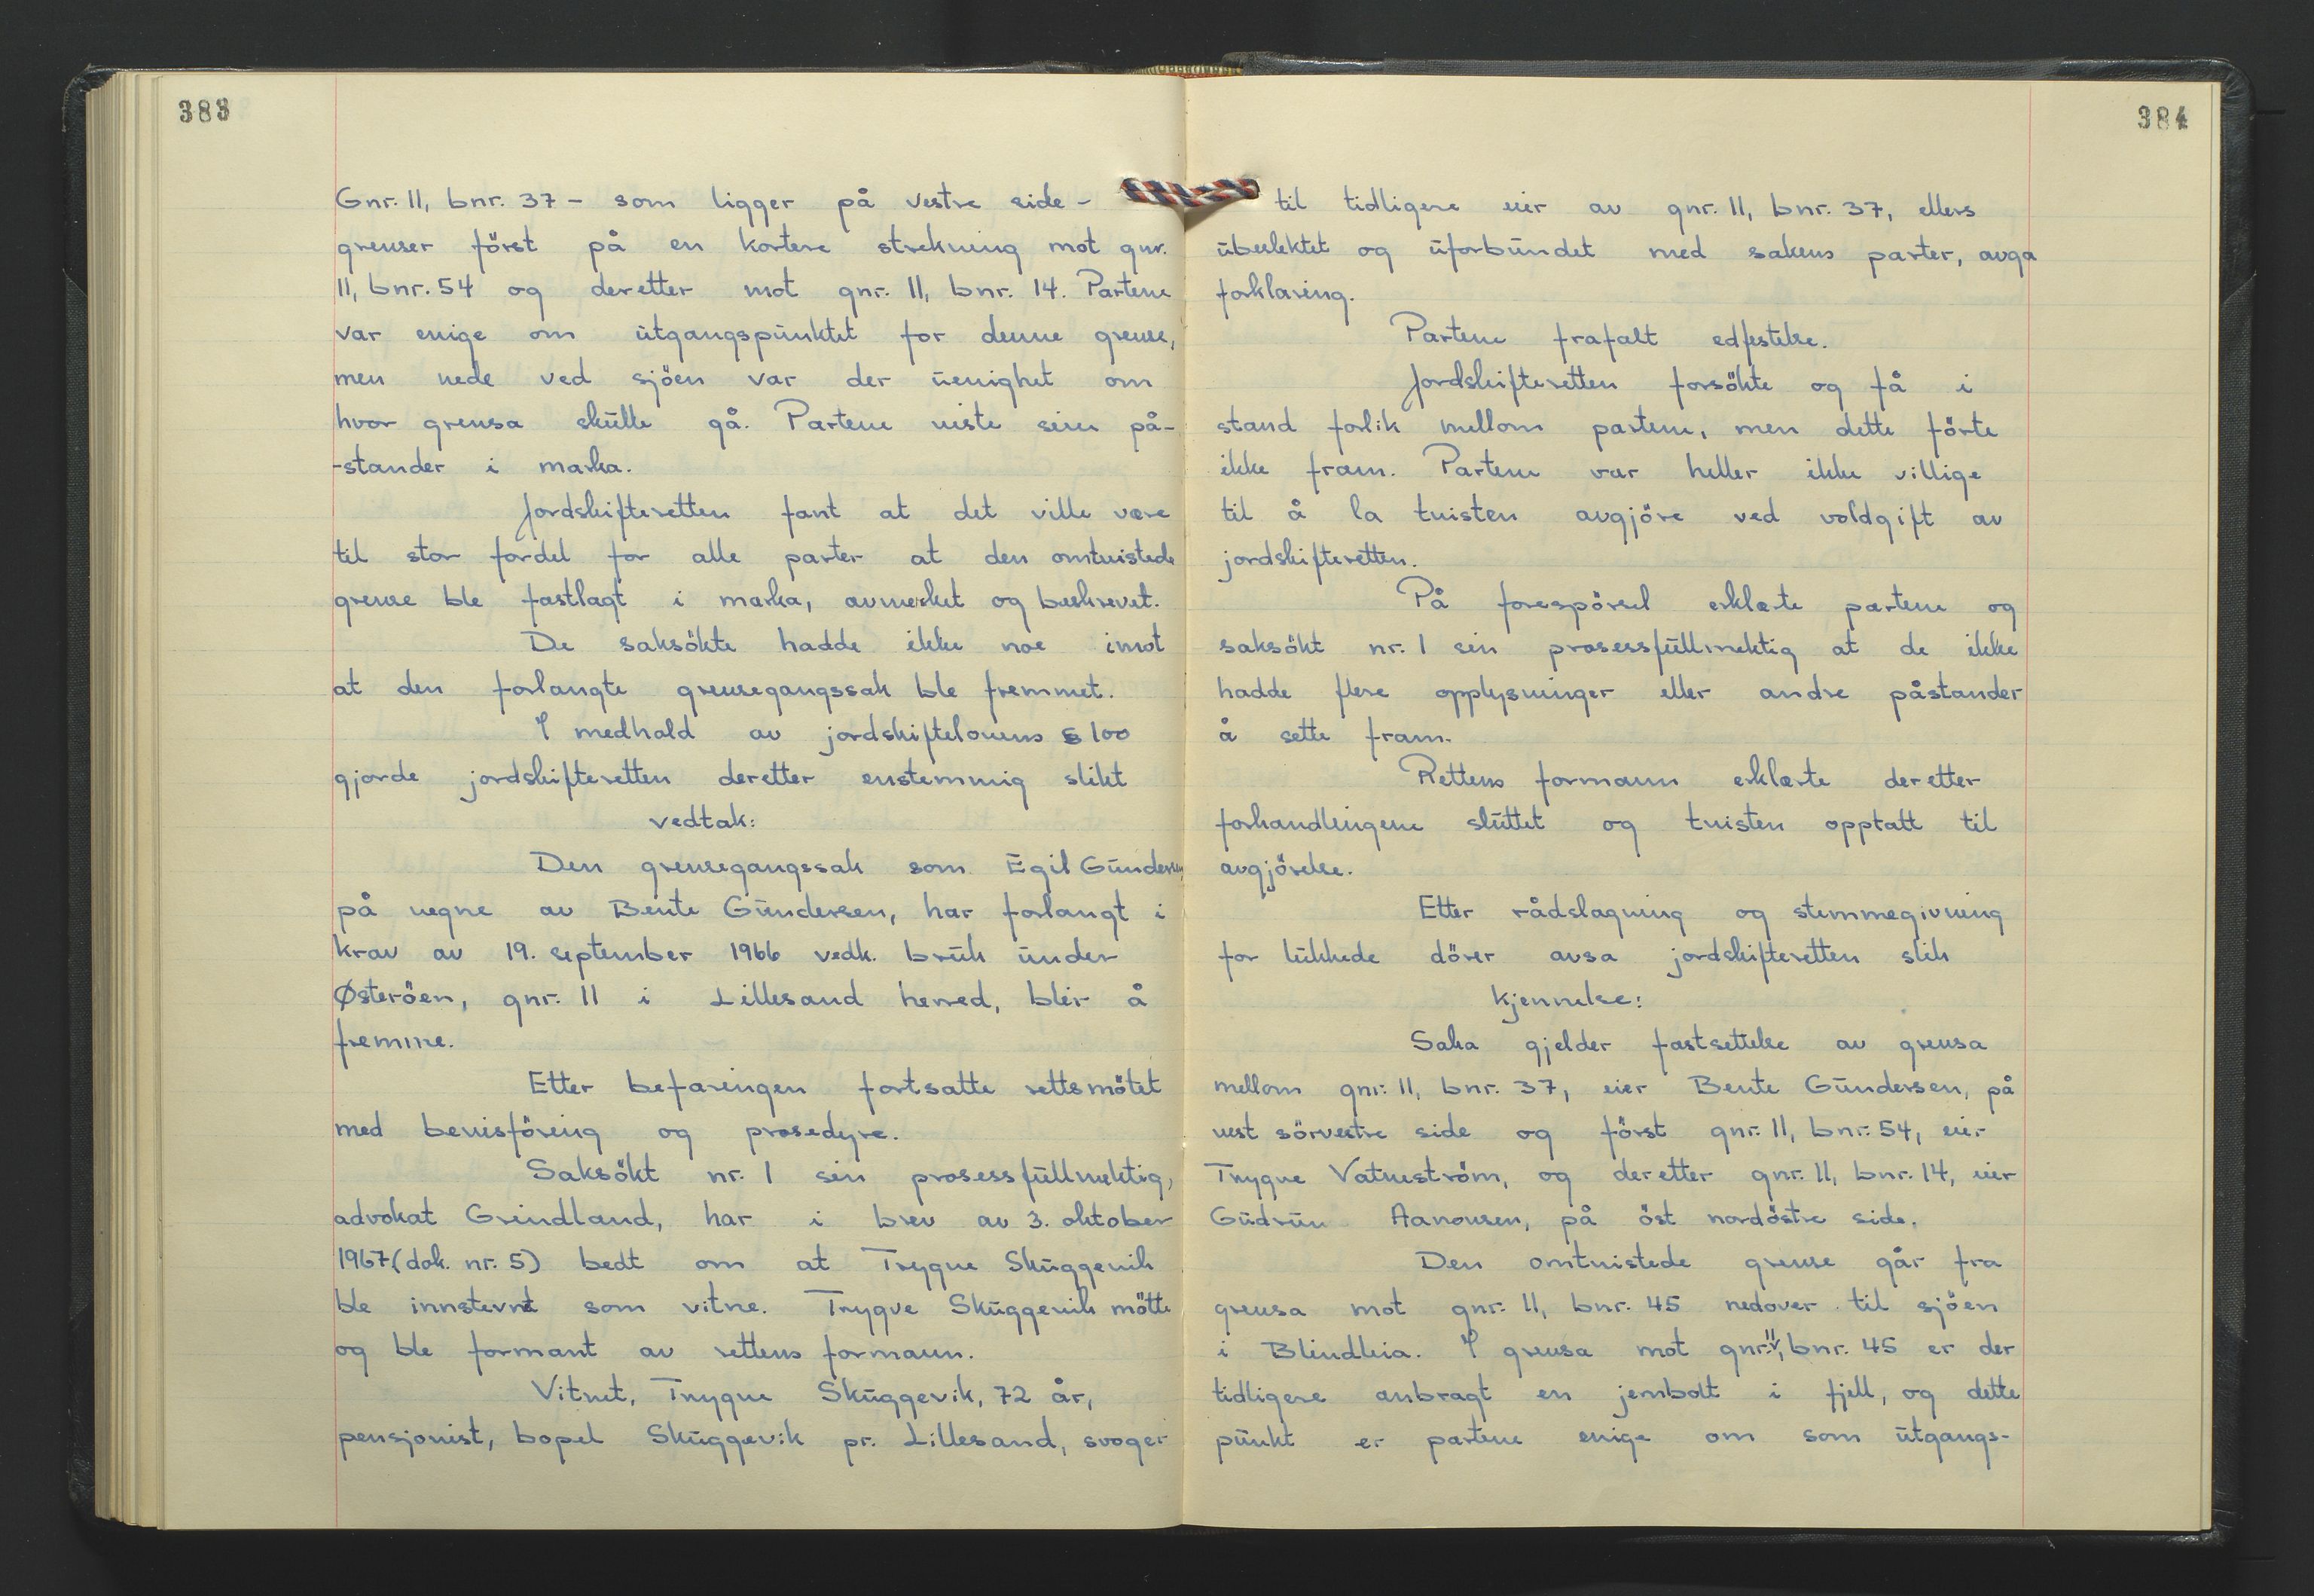 383
Gnr. 11, bnr. 37 - som ligger på vestre side -
grenser först på en kortere strekning mot gnr.
11, bnr. 54 og deretter mot gnr. 11, bnr. 14. Partene
var enige om utgangspunktet for denne grense,
men nede ved sjöen var der uenighet om
hvor grensa skulle gå. Partene viste sine på-
-stander i marka.
Jordskifteretten fant at det ville være
til stor fordel for alle parter at den omtvistede
grense ble fastlagt i marka, avmerket og beskrevet.
De saksökte hadde ikke noe imot
at den forlangte grensegangssak ble fremmet.
I medhald av jordskiftelovens § 100
gjorde jordskifteretten deretter enstemmig slikt
vedtak:
Den grensegangssak som Egil Gundersen,
på vegne av Bente Gundersen, har forlangt i
krav av 19. september 1966 vedk. bruk under
Østeröen, gnr. 11 i Lillesand herred, blir å
fremme.
Etter befaringen fortsatte rettsmötet
med bevisföring og prosedyre.
Saksökt nr. 1 sin prosessfullmektig,
advokat Grindland, har i brev av 3. oktober
1967 (dok. nr. 5) bedt om at Trygve Skuggevik
ble innstevnt som vitne. Trygve Skuggevik mötte
og ble formant av rettens formann.
Vitnet, Trygve Skuggevik, 72 år,
pensjonist, bopel Skuggevik pr. Lillesand, svoger
384
til tidligere eier av gnr. 11, bnr. 37, ellers
ubeslektet og uforbundet med sakens parter, avga
forklaring.
Partene frafalt edfestelse.
Jordskifteretten forsökte og få i
stand forlik mellom partene, men dette förte
ikke fram. Partene var heller ikke villige
til å la tvisten avgjöre ved voldgift av
jordskifteretten.
På forespörsel erklærte partene og
saksökt nr. 1 sin prosessfullmektig at de ikke
hadde flere opplysninger eller andre påstander
å sette fram.
Rettens formann erklærte deretter
forhandlingene sluttet og tvisten opptatt til
avgjörelse.
Etter rådslagning og stemmegivning
for lukkede dörer avsa jordskifteretten slik
kjennelse:
Saka gjelder fastsettelse av grensa
mellom gnr. 11, bnr. 37, eier Bente Gundersen, på
vest sörvestre side og först gnr. 11, bnr. 54, eier
Trygve Vatneström, og deretter gnr. 11, bnr. 14, eier
Gudrun Aanonsen, på öst nordöstre side.
Den omtvistede grense går fra
grensa mot gnr. 11, bnr. 45 nedover til sjöen
i Blindleia. I grensa mot gnr. 11, bnr. 45 er der
tidligere anbragt en jernbolt i fjell, og dette
punkt er partene enige om som utgangs-